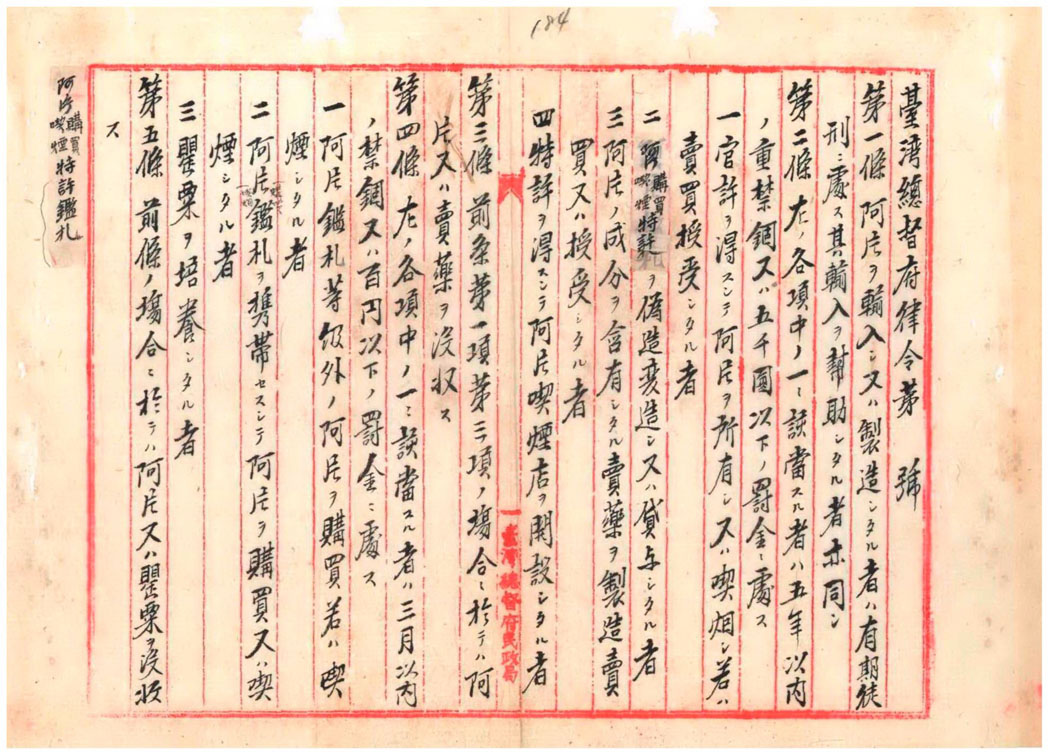 184
臺湾總督府律令第　號
第一條　阿片ヲ輸入シ又ハ製造シタル者ハ有期徒
刑ニ處ス其輸入ヲ幇助シタル者亦同シ
第二條　左ノ各項中ノ一ニ該當スル者ハ五年以内
ノ重禁錮又ハ五千圓以下ノ罰金ニ處ス
一官許ヲ得スシテ阿片ヲ所有シ又ハ喫烟シ若ハ
賣買授受シタル者
二　購買喫煙特許ヲ偽造変造シ又ハ貸与シタル者
三阿片ノ成分ヲ含有シタル賣薬ヲ製造賣
買又ハ授受シタル者
四特許ヲ得スシテ阿片喫煙店ヲ開設シタル者
臺灣總督府民政局
第三條　前条第一項第三項ノ場合ニ於テハ阿
片又ハ賣薬ヲ没収ス
第四條　左ノ各項中ノ一ニ該當スル者ハ三月以内
ノ禁錮又ハ百円以下ノ罰金ニ處ス
一　阿片鑑札等級外ノ阿片ヲ購買若ハ喫
煙シタル者
二　阿片鑑札ヲ携帯セスシテ阿片ヲ購買又ハ喫
煙シタル者
三罌粟ヲ培養シタル者
第五條　前條ノ場合ニ於テハ阿片又ハ罌粟ヲ没収
ス
阿片購買喫煙特許鑑札